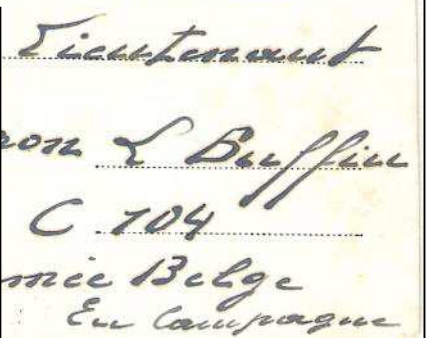 Lieutenant
on L Buffin
C 104
mée Belge
En Campagne